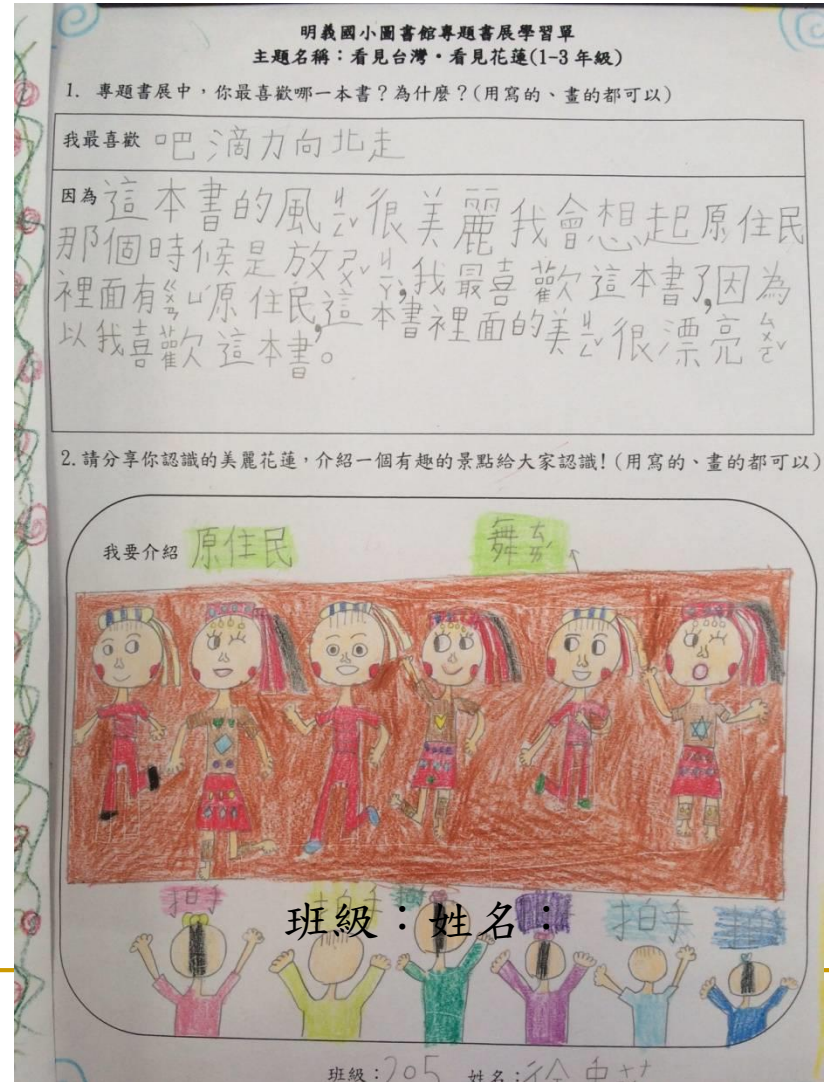 明義國小圖書館專題書展學習單
主題名稱：看見台灣・看見花蓮(1-3 年級)
1. 專題書展中，你最喜歡哪一本書？為什麼？(用寫的、畫的都可以)
我最喜歡 吧滴力向北走
因為這本書的風ㄐㄧㄥˇ很美麗我會想起原住民
那個時候是放ㄕㄨˇㄐㄧㄚˋ,我最喜歡這本書了,因為
裡面有ㄒㄩㄝˇ山原住民,這本書裡面的美ㄐㄧㄥˇ很漂亮ㄙㄨㄛˇ
以我喜歡這本書。
2. 請分享你認識的美麗花蓮，介紹一個有趣的景點給大家認識! (用寫的、畫的都可以)
我要介紹 原住民 舞ㄉㄠˋ
拍手 拍手 拍手
班級：姓名：
班級：205 姓名：徐